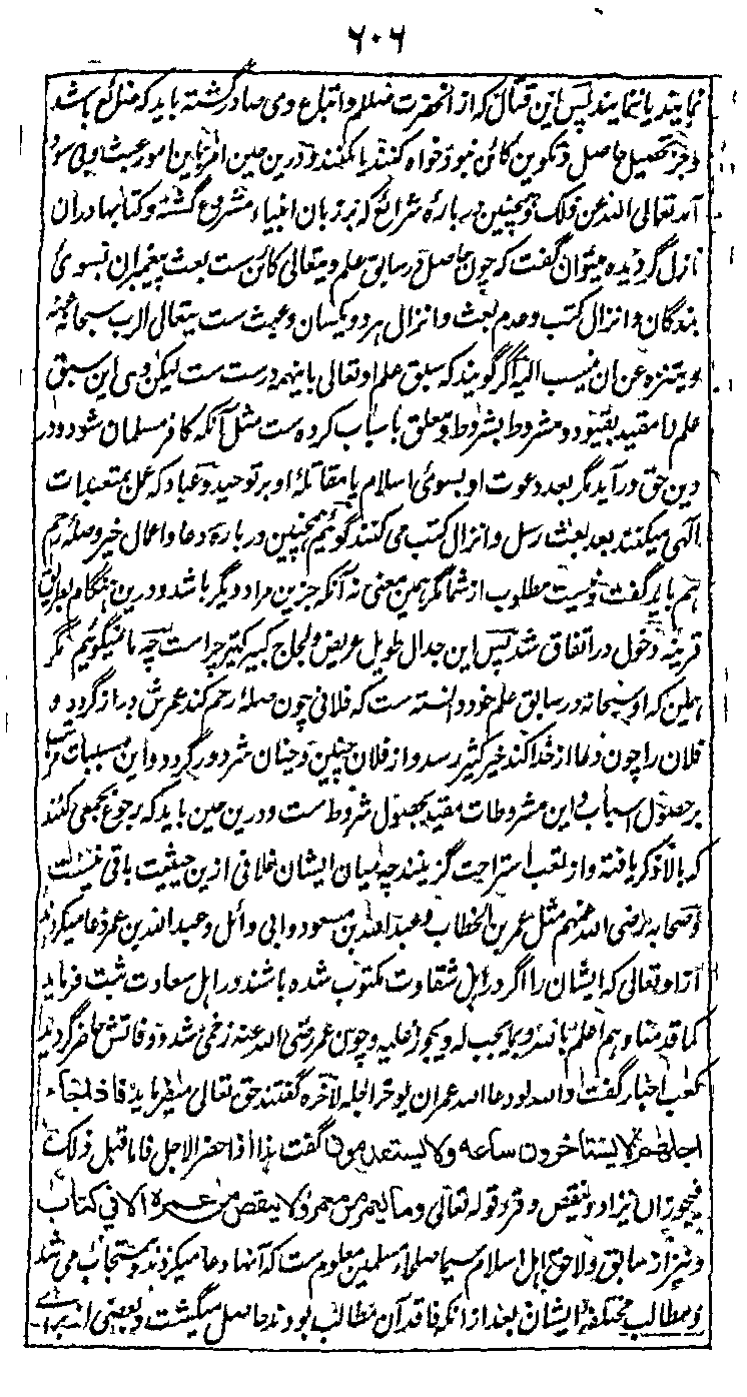 ۶۰۶
نمایند یا ننمایند پس این قتال که از انحضرت صللم و اتباع وی صادر گشته باید که ضائع باشد
و جز تحصیل حاصل و تکوین کائن نبود خواه کنند یا نکنند و درین حین امر باین امور عبث و بی سود
آمد تعالی الله عن ذلک و همچنین درباره شرائع که بر زبان انبیاء مشروع گشته و کتابها دران
نازل گردیده میتوان گفت که چون حاصل در سابق علم ویتعالی کائن ست بعث پیغمبران بسوی
بندگان و انزال کتب و عدم بعث و انزال هر دو یکسان و عبث ست یتعالی الرب سبحانه عنه
و یتنزه عن ان ینسب الیه اگر گویند که سبق علم او تعالی باینهمه درست ست لیکن وی این سبق
علم را مقید بقیود و مشروط بشروط و معلق باسباب کرده ست مثل آنکه کافر مسلمان شود و در
دین حق درآید مگر بعد دعوت او بسوی اسلام یا مقاتلۀ او بر توحید و عباد که عمل بتعبدات
الهی میکنند بعد بعث رسل و انزال کتب می کنند گوئیم همچنین درباره دعا و اعمال خیر و صلۀ رحم
هم باید گفت و نیست مطلوب از شما مگر همین معنی نه آنکه جزین مراد دیگر باشد و درین هنگام بطریق
قریبه دخول در اتفاق شد پس این جدال طویل عریض و لجاج کبیر کثیر چراست چه ما نمیگوئیم مگر
همین که او سبحانه در سابق علم خود دانسته ست که فلانی چون صلۀ رحم کند عمرش دراز گردد و
فلان را چون دعا از خدا کند خیر کثیر رسد و از فلان چنین و چنان شر دور گردد و این مسببات مرتب
بر حصول اسباب و این مشروطات مقید بحصول شروط ست و درین حین باید که رجوع بجمعی کنند
که بالا ذکر یافته و از تعب استراحت گزینند چه میان ایشان خلافی ازین حیثیت باقی نیست
و صحابه رضی الله عنهم مثل عمر بن الخطاب و عبد الله بن مسعود و ابی وائل و عبد الله بن عمر دعا میکردند
از او تعالی که ایشان را اگر در اهل شقاوت مکتوب شده باشند در اهل سعادت ثبت فرماید
کما قدمنا و هم اعلم بالله و بما یجب له و یجوز علیه و چون عمر رضی الله عنه زخمی شد و وفاتش حاضر گردید
کعب احبار گفت والله لو دعا الله عمر ان یوخر اجله لاخره گفتند حق تعالی میفرماید فاذا جاء
اجلهم لا یستاخرون ساعه ولا یستقدمون گفت هذا اذا حضر الاجل فاما قبل ذلک
فیجوز ان یزاد و ینقص و قرء قوله تعالی وما یعمر من معمر ولا ینقص من عمره الا فی کتاب
و نیز از سابق و لاحق اهل اسلام سیما صلحاء مسلمین معلوم ست که آنها دعا میکردند و مستجاب می شد
و مطالب مختلفۀ ایشان بعد از انکه فاقد آن مطالب بودند حاصل میگشت و بعضی از